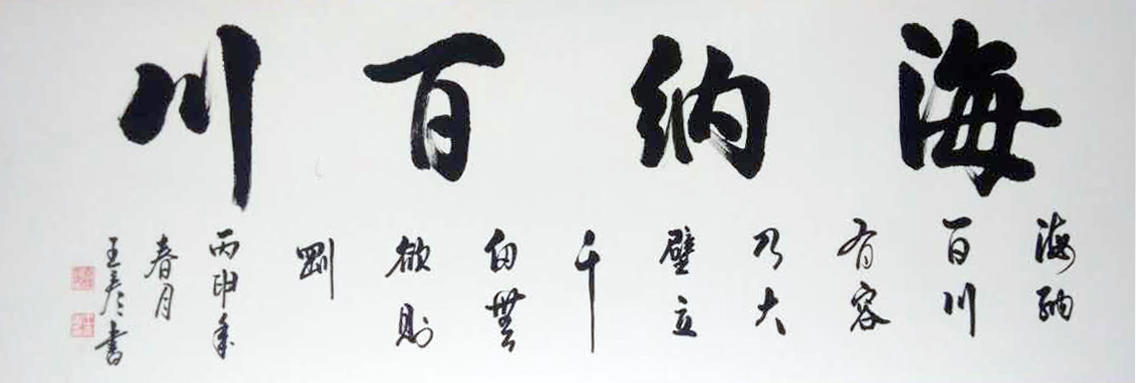 海納百川
海納
百川
有容
乃大
壁立
千
仞無
欲則
剛
丙申年
春月
王彦書